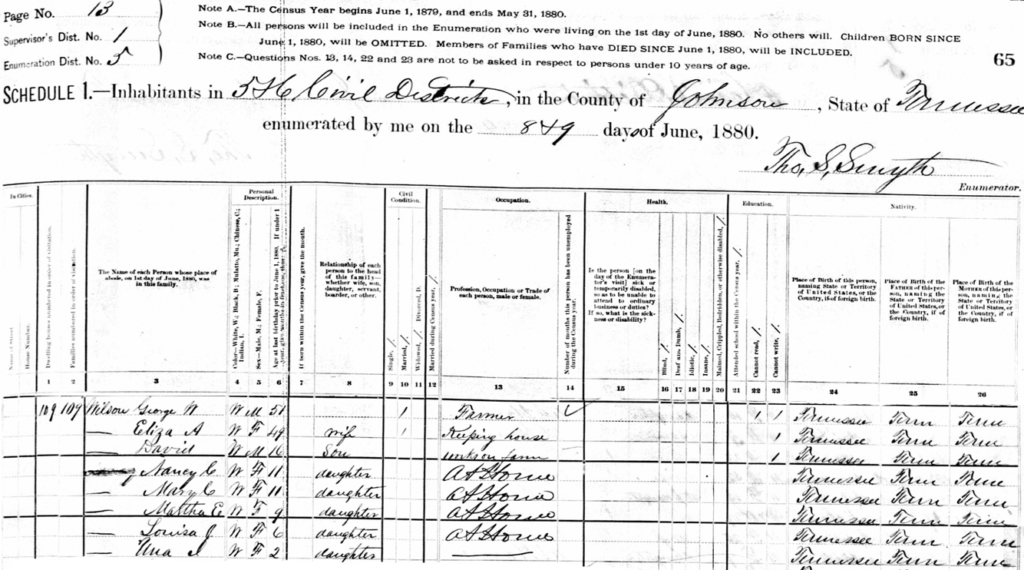 Page No. 13
Supervisor's Dist. No. 1
Enumeration Dist. No. 5
Note A.—The Census Year begins June 1, 1879, and ends May 31, 1880.
Note B.—All persons will be included in the Enumeration who were living on the 1st day of June, 1880. No others will. Children BORN SINCE
June 1, 1880, will be OMITTED. Members of Families who have DIED SINCE June 1, 1880, will be INCLUDED.
Note C.—Questions Nos. 13, 14, 22 and 23 are not to be asked in respect to persons under 10 years of age.
65
SCHEDULE 1.—Inhabitants in 5th Civil District, in the County of Johnson, State of Tennessee
enumerated by me on the 8&9 days of June, 1880.
Tho. S. Smyth
Enumerator.
In Cities.
Personal Description.
Civil Condition.
Occupation.
Health.
Education.
Nativity.
Name of Street.
House Number.
Dwelling houses numbered in order of visitation.
Families numbered in order of visitation.
The Name of each Person whose place of abode, on 1st day of June, 1880, was in this family.
Color—White, W; Black, B; Mulatto, Mu; Chinese, C; Indian, I.
Sex—Male, M; Female, F.
Age at last birthday prior to June 1, 1880. If under 1
If born within the Census year, give the month.
Relationship of each person to the head of this family—whether wife, son, daughter, servant, boarder, or other.
Single, /
Married, /
Widowed, / Divorced, D.
Married during Census year, /
Profession, Occupation or Trade of each person, male or female.
Number of months this person has been unemployed during the Census year.
Is the person [on the day of the Enumerator's visit] sick or temporarily disabled, so as to be unable to attend to ordinary business or duties? If so, what is the sickness or disability?
Blind, /
Deaf and Dumb, /
Idiotic, /
Insane, /
Maimed, Crippled, Bedridden, or otherwise disabled, /
Attended school within the Census year, /
Cannot read, /
Cannot write, /
Place of Birth of this person, naming State or Territory of United States, or the Country, if of foreign birth.
Place of Birth of the FATHER of this person, naming the State or Territory of United States, or the Country, if of foreign birth.
Place of Birth of the MOTHER of this person, naming the State or Territory of United States, or the Country, if of foreign birth.
1 2 3 4 5 6 7 8 9 10 11 12 13 14 15 16 17 18 19 20 21 22 23 24 25 26
109 109 Wilson George W W M 51 1 Farmer 1 1 Tennessee Tenn Tenn
— Eliza A W F 49 wife 1 Keeping house 1 Tennessee Tenn Tenn
— David W M 16 Son work on farm 1 Tennessee Tenn Tenn
— Nancy C W F 11 daughter At Home Tennessee Tenn Tenn
— Mary C W F 11 daughter At Home Tennessee Tenn Tenn
— Martha E W F 9 daughter At Home Tennessee Tenn Tenn
— Louisa J W F 6 daughter At Home Tennessee Tenn Tenn
— W F 2 daughter Tennessee Tenn Tenn